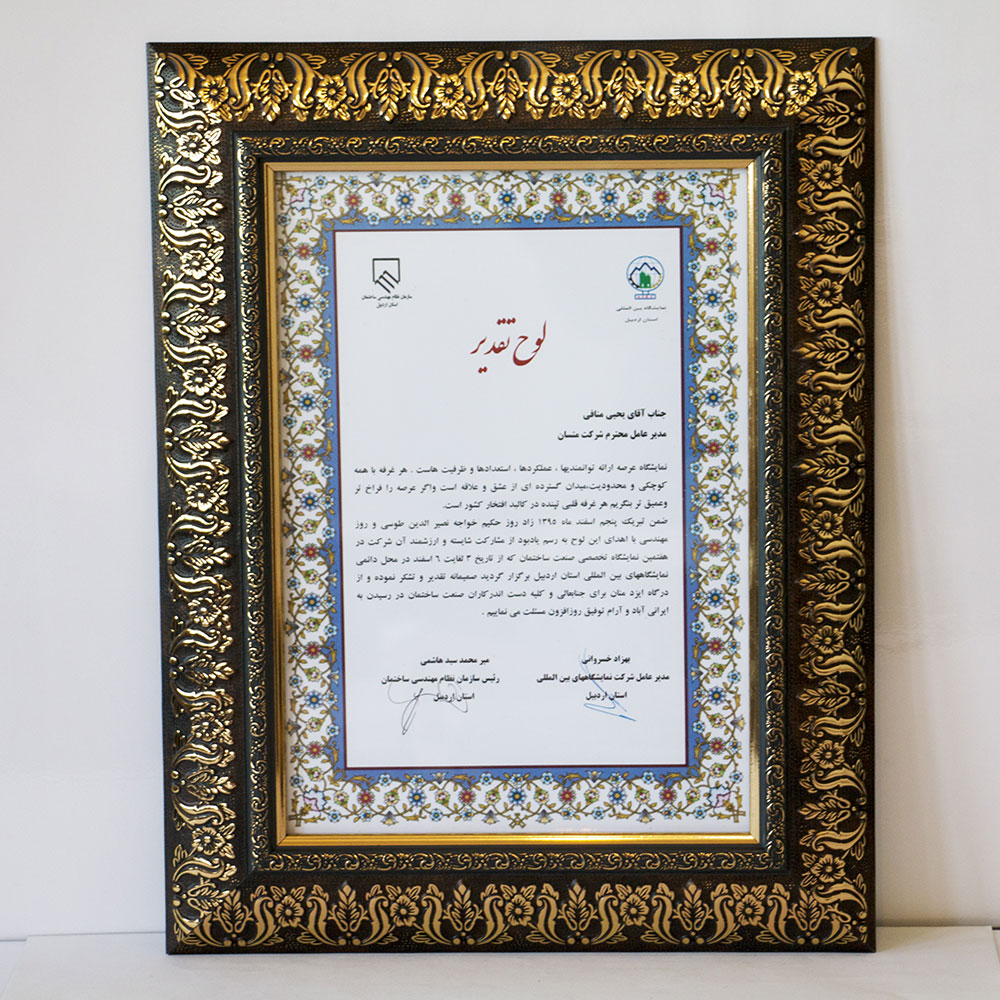 سازمان نظام مهندسی ساختمان
استان اردبیل
نمایشگاه بین المللی
استان اردبیل
لوح تقدیر
جناب آقای یحیی منافی
مدیر عامل محترم شرکت متسان
نمایشگاه عرصه ارائه توانمندیها ، عملکردها ، استعدادها و ظرفیت هاست . هر غرفه با همه
کوچکی و محدودیت،میدان گسترده ای از عشق و علاقه است واگر عرصه را فراخ تر
وعمیق تر بنگریم هر غرفه قلبی تپنده در کالبد افتخار کشور است.
ضمن تبریک پنجم اسفند ماه ۱۳۹۵ زاد روز حکیم خواجه نصیر الدین طوسی و روز
مهندسی با اهدای این لوح به رسم یادبود از مشارکت شایسته و ارزشمند آن شرکت در
هفتمین نمایشگاه تخصصی صنعت ساختمان که از تاریخ ۳ لغایت ٦ اسفند در محل دائمی
نمایشگاههای بین المللی استان اردبیل برگزار گردید صمیمانه تقدیر و تشکر نموده و از
درگاه ایزد منان برای جنابعالی و کلیه دست اندرکاران صنعت ساختمان در رسیدن به
ایرانی آباد و آرام توفیق روزافزون مسئلت می نماییم .
بهزاد خسروانی
مدیر عامل شرکت نمایشگاههای بین المللی
استان اردبیل
میر محمد سید هاشمی
رئیس سازمان نظام مهندسی ساختمان
استان اردبیل